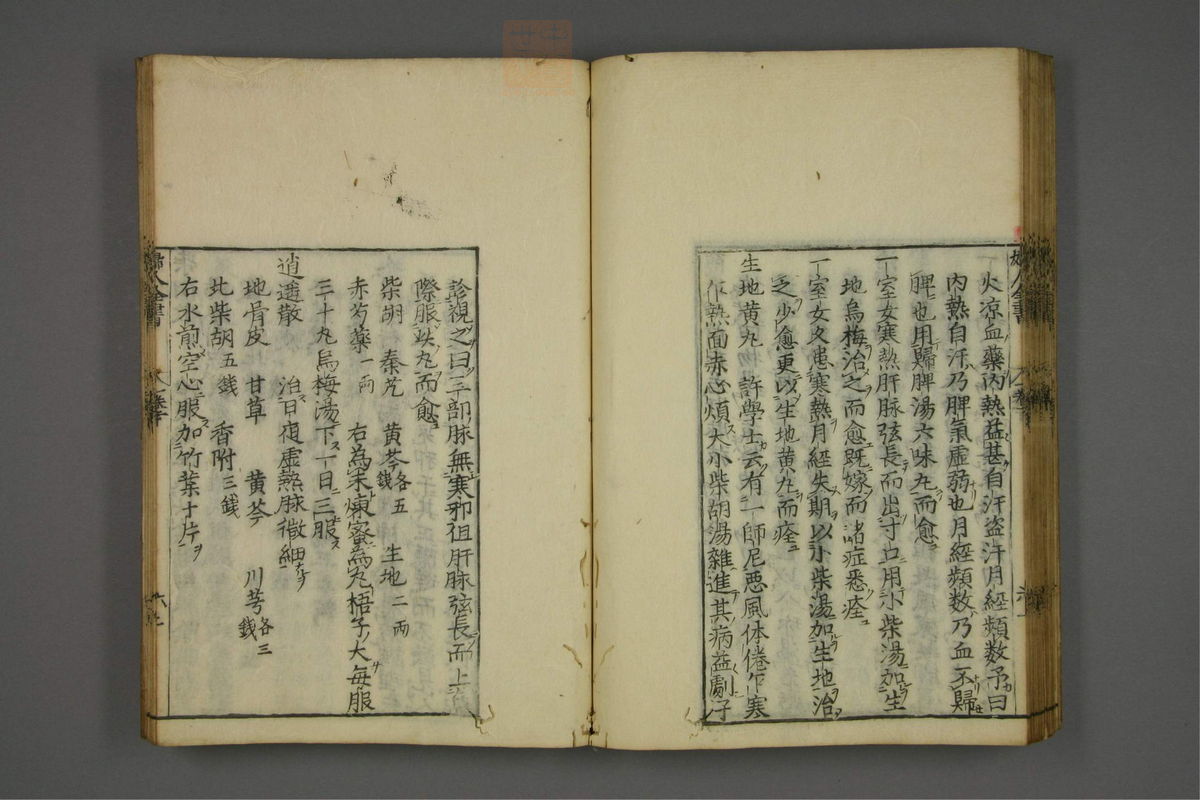 火凉血藥内熱益甚自汗盗汗月経頻数予曰
内熱自汗乃脾氣虚弱也月経頻数乃血不歸
脾也用歸脾湯六味丸而愈
一室女寒熱肝脉弦長而出寸口用小柴湯加生
地烏梅治之而愈既嫁而諸症悉痊
一室女久患寒熱月経失期以小柴湯加生地治
之少愈更以生地黄丸而痊
生地黄丸 許學士云有一師尼悪風体倦乍寒
乍熱面赤心煩大小柴胡湯雜進其病益劇予
診視之曰二部脉無寒邪但肝脉弦長而上
際服此丸而愈
柴胡 秦艽 黄芩各五銭 生地二両
赤芍藥一両 右為末煉蜜為丸梧子大毎服
三十丸烏梅湯下一日三服
逍遥散 治日夜虚熱脉微細
地骨皮 甘草 黄芩 川芎各三銭
北柴胡五銭 香附三銭
右水煎空心服加竹葉十片
婦人全書